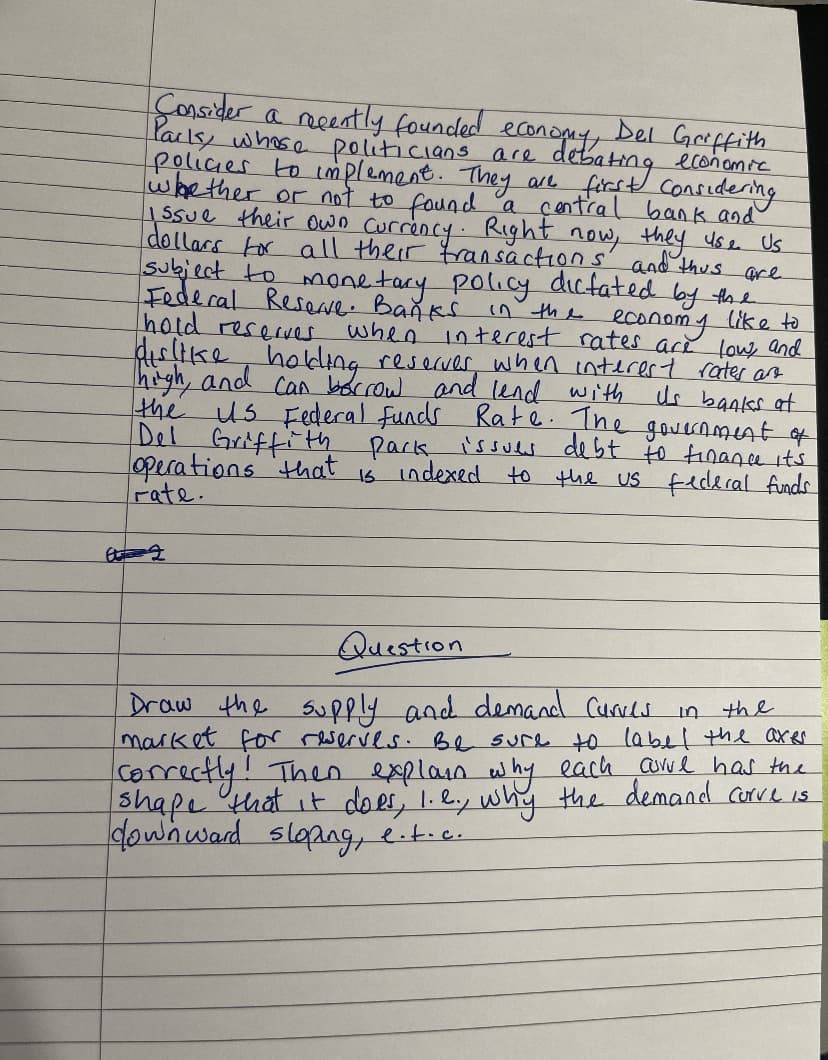 Consider a recently founded economy, Del Griffith
Park, whose politicians are debating economic
policies to implement. They are first considering
whether or not to found a central bank and
issue their own currency. Right now, they use US
dollars for all their transactions and thus are
subject to monetary policy dictated by the
Federal Reserve. Banks in the economy like to
hold reserves when interest rates are low, and
dislike holding reserves when interest rates are
high, and can borrow and lend with US banks at
the US Federal funds Rate. The government of
Del Griffith Park issues debt to finance its
operations that is indexed to the US federal funds
rate.
Question
Draw the supply and demand Curves in the
market for reserves. Be sure to label the axes
correctly! Then explain why each curve has the
shape that it does, i.e., why the demand curve is
downward sloping, e.t.c.